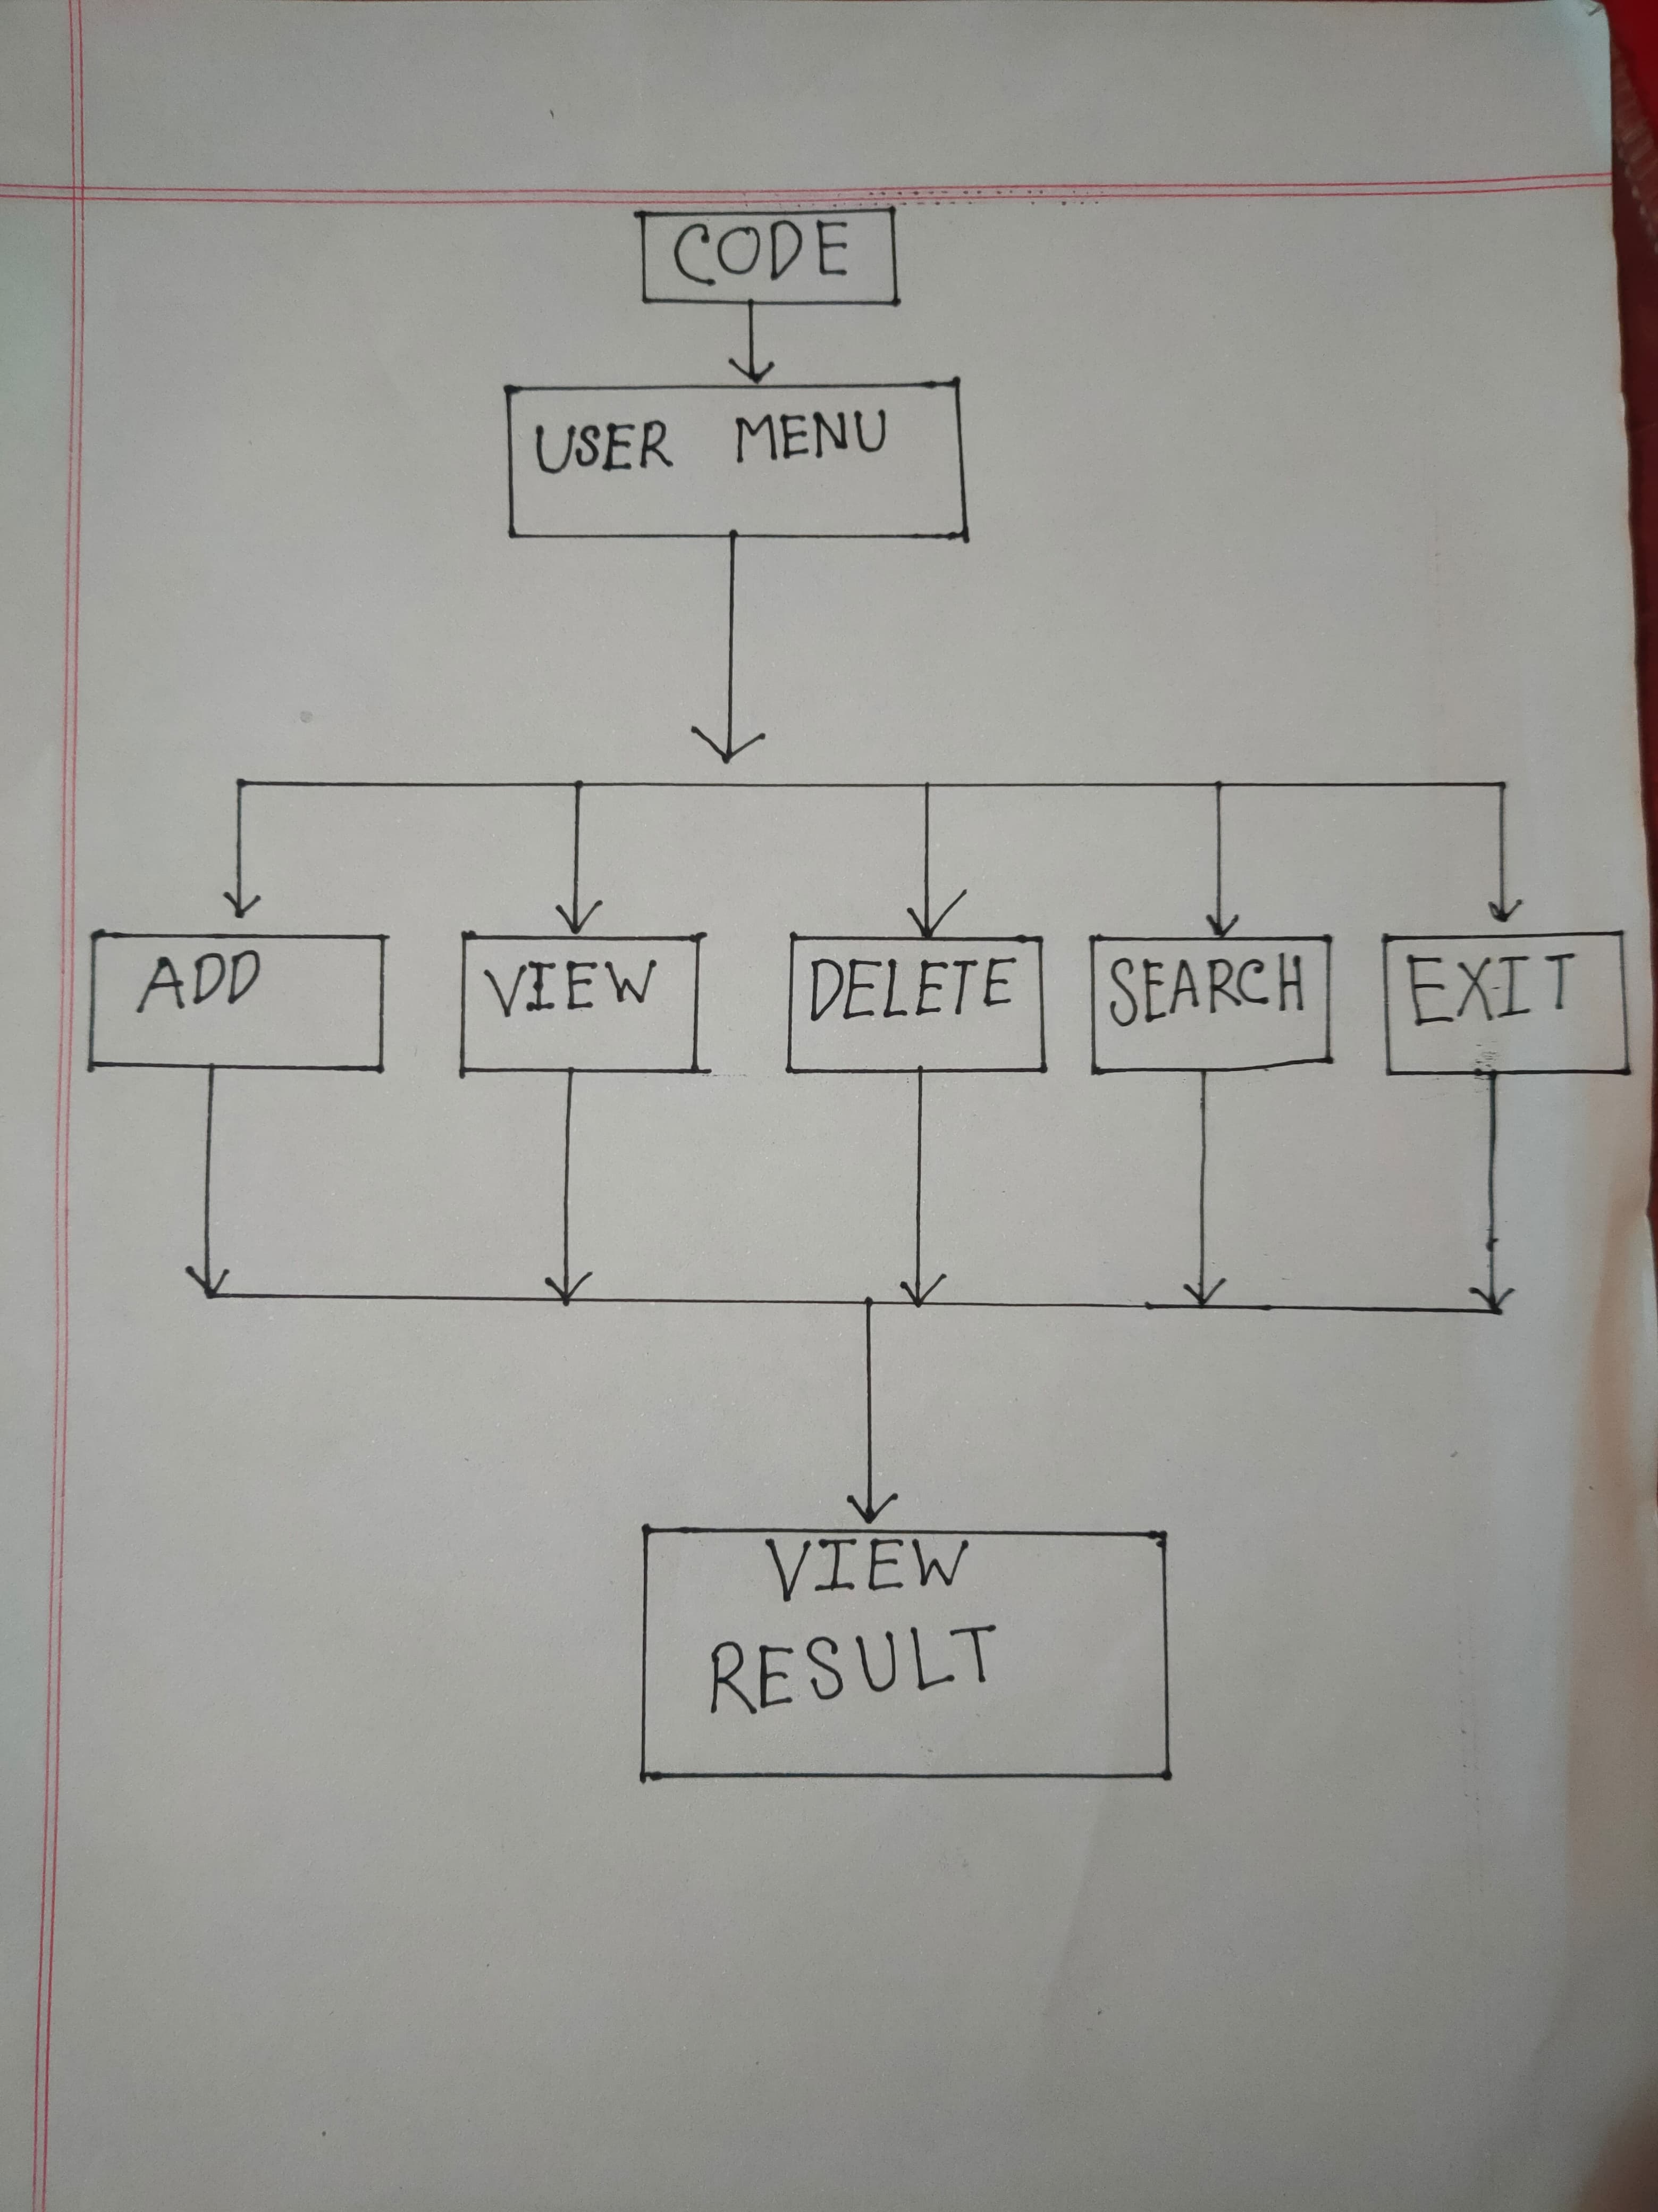 CODE
USER MENU
ADD
VIEW
DELETE
SEARCH
EXIT
VIEW
RESULT